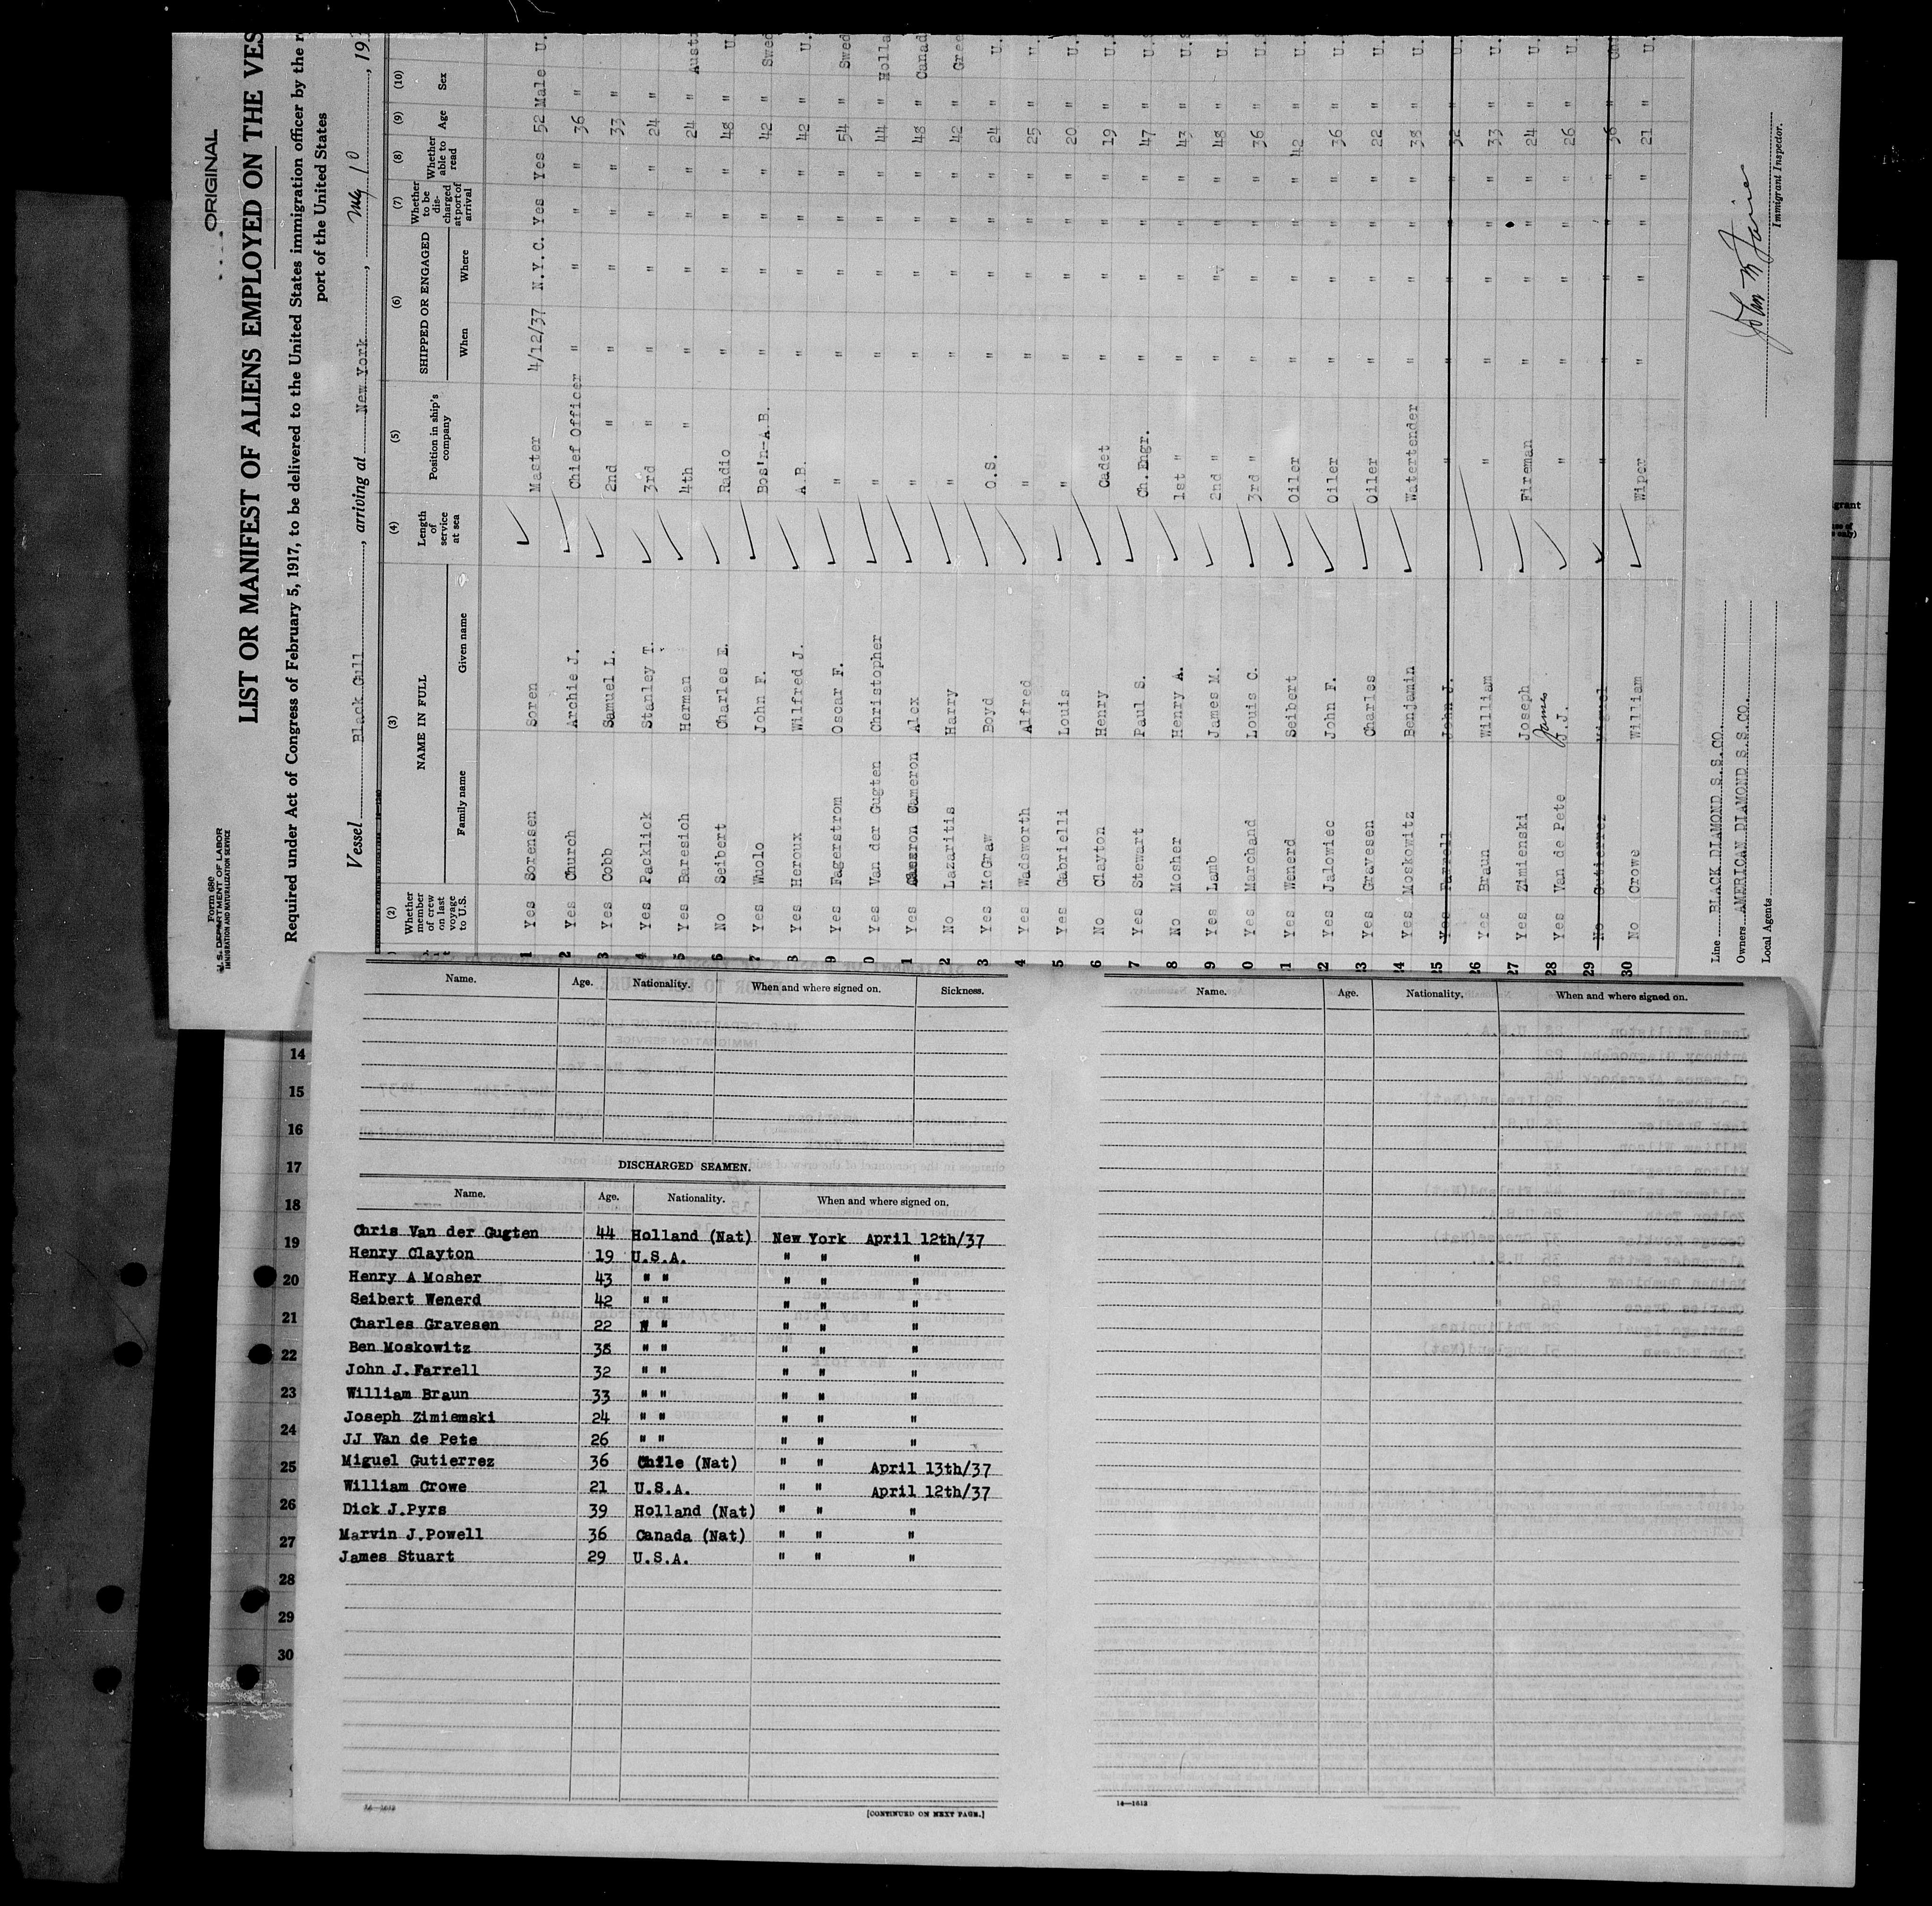 ORIGINAL
Form 680
U. S. DEPARTMENT OF LABOR
IMMIGRATION AND NATURALIZATION SERVICE
LIST OR MANIFEST OF ALIENS EMPLOYED ON THE VES
Required under Act of Congress of February 5, 1917, to be delivered to the United States immigration officer by the
port of the United States
Vessel Black Gull, arriving at New York, 10, 19
(2) (3) (4) (5) (6) (7) (8) (9) (10)
Whether member of crew on last voyage to U.S. NAME IN FULL Family name Given name Length of service at sea Position in ship's company SHIPPED OR ENGAGED When Where Whether to be discharged at port of arrival Whether able to read Age Sex
1 Yes Sorensen Soren Master 4/12/37 N.Y.C. Yes Yes 52 Male U.
2 Yes Church Archie J. Chief Officer " " " " 36 "
3 Yes Cobb Samuel L. 2nd " " " " " 33 "
4 Yes Packlick Stanley T. 3rd " " " " " 24 "
5 Yes Baresich Herman 4th " " " " " 24 " Aust
6 No Seibert Charles E. Radio " " " " 48 " U.
7 Yes Wuolo John F. Bos'n-A.B. " " " " 42 " Swed
8 Yes Heroux Wilfred J. A.B. " " " " 42 " U.
9 Yes Fagerstrom Oscar F. " " " " " 54 " Swed
0 Yes Van der Gugten Christopher " " " " " 44 " Holla
1 Yes Cameron Alex " " " " " 48 " Canad
2 No Lazaritis Harry " " " " " 42 " Gree
3 Yes McGraw Boyd O.S. " " " " 24 " U.
4 Yes Wadsworth Alfred " " " " " 25 " U.
5 Yes Gabrielli Louis " " " " " 20 " U.
6 No Clayton Henry Cadet " " " " 19 " U.
7 Yes Stewart Paul S. Ch. Engr. " " " " 47 " U.
8 No Mosher Henry A. 1st " " " " " 43 " U.
9 Yes Lamb James M. 2nd " " " " " 48 " U.
0 Yes Marchand Louis C. 3rd " " " " " 36 " U.
21 Yes Wenerd Seibert Oiler " " " " 42 " U.
22 Yes Jalowiec John F. Oiler " " " " 36 " U.
23 Yes Gravesen Charles Oiler " " " " 22 " U.
24 Yes Moskowitz Benjamin Watertender " " " " 38 " U.
25 Yes Farrell John J. " " " " " 32 " U.
26 Yes Braun William " " " " " 33 " U.
27 Yes Zimienski Joseph Fireman " " " " 24 " U.
28 Yes Van de Pete J.J. James " " " " " 26 " U.
29 No Gutierrez Miguel " " " " " 36 "
30 No Crowe William Wiper " " " " 21 " U.
Line BLACK DIAMOND S.S.CO.
Owners AMERICAN DIAMOND S.S.CO.
Local Agents
Immigrant Inspector.
Name. Age. Nationality. When and where signed on. Sickness.
DISCHARGED SEAMEN.
Name. Age. Nationality. When and where signed on.
Chris Van der Gugten 44 Holland (Nat) New York April 12th/37
Henry Clayton 19 U.S.A. " " "
Henry A Mosher 43 " " " " "
Seibert Wenerd 42 " " " " "
Charles Gravesen 22 " " " " "
Ben Moskowitz 38 " " " " "
John J.Farrell 32 " " " " "
William Braun 33 " " " " "
Joseph Zimiemski 24 " " " " "
JJ Van de Pete 26 " " " " "
Miguel Gutierrez 36 Chile (Nat) " " April 13th/37
William Crowe 21 U.S.A. " " April 12th/37
Dick J.Pyrs 39 Holland (Nat) " " "
Marvin J.Powell 36 Canada (Nat) " " "
James Stuart 29 U.S.A. " " "
[CONTINUED ON NEXT PAGE.]
Name. Age. Nationality. When and where signed on.
14—1612
14
15
16
17
18
19
20
21
22
23
24
25
26
27
28
29
30